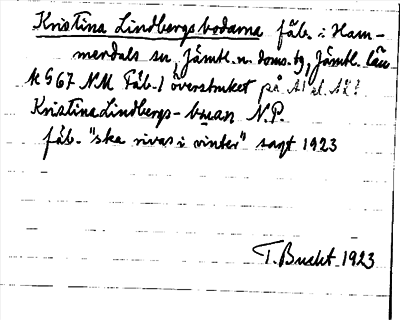 Kristina Lindbergsbodarna fäb. i Ham-
merdals sn, Jämtl. n. doms. tg, Jämtl. län
K 567 NM Fäb. överstruket på
Kristina Lindbergs-buan N.P.
fäb. "ska rivas i vinter" sagt 1923
T. Bucht 1923